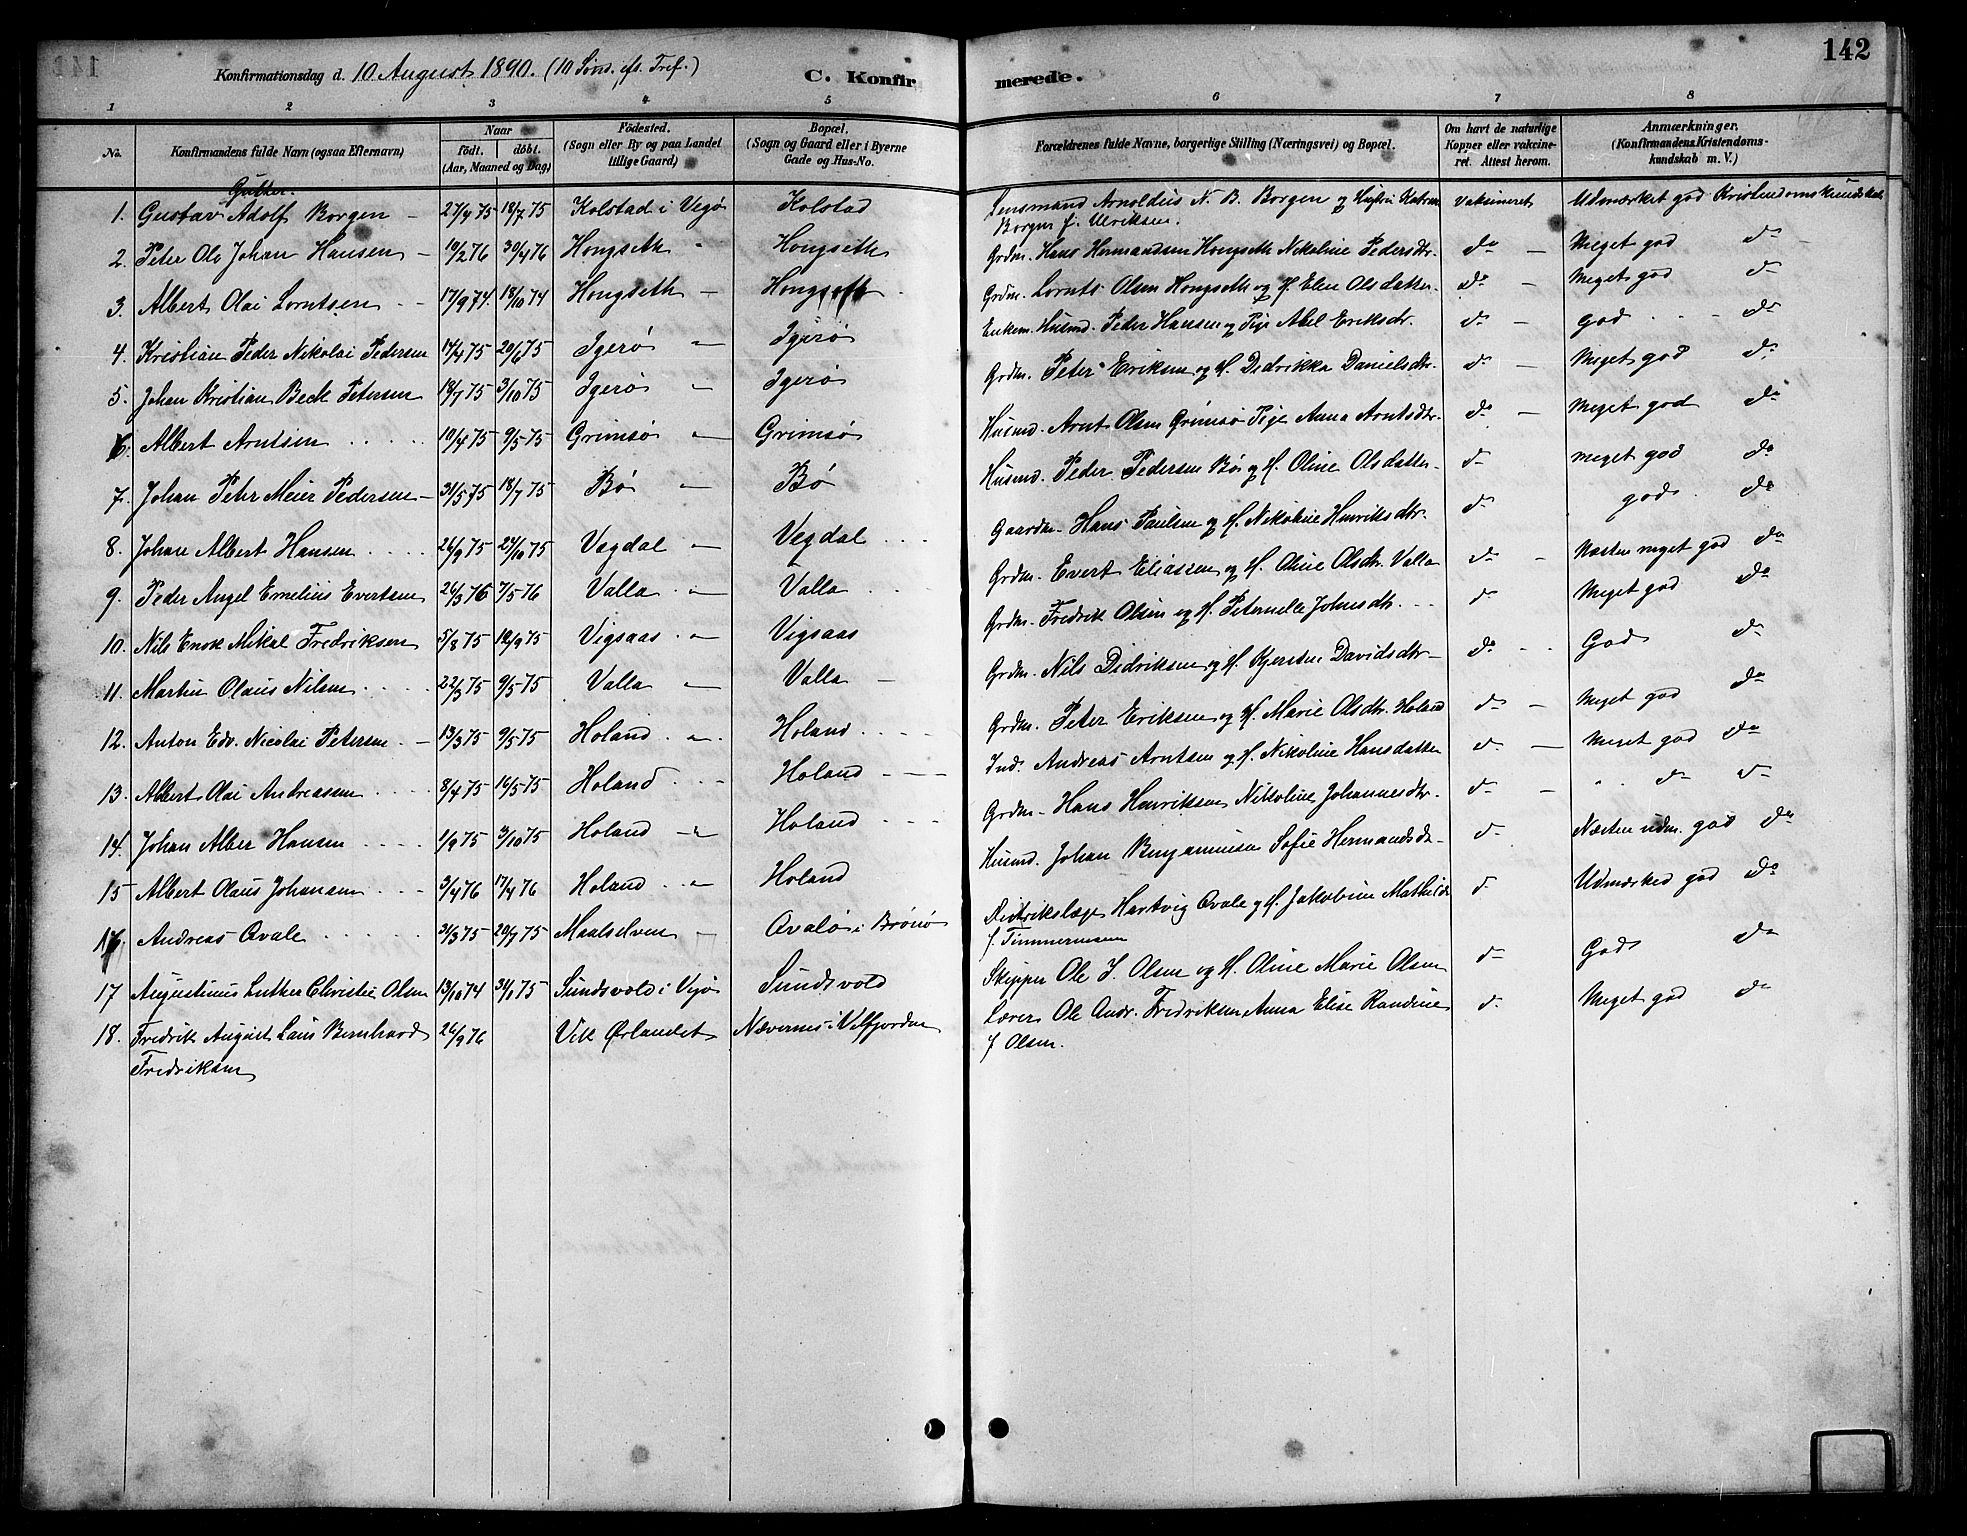 142
Konfirmationsdag d. 10 August 1890. (10 Sønd. eft. Tref.) C. Konfirmerede.
1 2 3 4 5 6 7 8
No. Konfirmandens fulde Navn (ogsaa Efternavn) Naar födt. döbt. (Aar, Maaned og Dag) Födested. (Sogn eller By og paa Landet tillige Gaard) Bopæl. (Sogn og Gaard eller i Byerne Gade og Hus-No. Forældrenes fulde Navne, borgerlige Stilling (Næringsvei) og Bopæl. Om havt de naturlige Kopper eller vakcineret. Attest herom. Anmærkninger. (Konfirmandens Kristendomskundskab m. V.)
Gutter.
1. Gustav Adolf Borgen 27/4 75 18/7 75 Kolstad i Vegø Kolstad Lensmand Arnoldus N. B. Borgen og Hustru Katrine Borgen f. Ulriksen. vaksineret Udmærket god Kristendomskundskab
2. Peter Ole Johan Hansen 10/2 76 30/4 76 Hongseth " Hongseth Grdm. Hans Hermandsen Hongseth Nikoline Pedersdtr. do Meget god do
3. Albert Olai Lorntsen 17/9 74. 18/10 74 Hongseth Hongseth Grdm. Lornts Olsen Hongseth og H. Elen Olsdatter. do Meget god do
4. Kristian Peder Nikolai Pedersen 14/4 75 20/6 75 Igerø " Igerø Enkem. Husmd. Peder Hansen og Pige Abel Eriksdr. do god do
5. Johan Kristian Beck Petersen 18/7 75 3/10 75 Igerø " Igerø Grdm. Peter Eriksen og H. Didrikka Danielsdtr. do Meget god do
6. Albert Arntsen 10/4 75 9/5 75 Grimsø " Grimsø Husmd. Arnt Olsen Grimsø Pige Anna Arntsdtr. do Meget god do
7. Johan Peter Meier Pedersen 31/5 75 18/7 75 Bø " Bø Husmd. Peder Pedersen Bø og H. Oline Olsdatter do meget god do
8. Johan Albert Hansen 26/9 75 24/10 75 Vegdal " Vegdal Gaardm. Hans Paulsen og H. Nikoline Henriksdtr. do god do
9. Peder Angel Emelius Evertsen 26/3 76 7/5 76 Valla " Valla Grdm. Evert Eliassen og H. Oline Olsdtr. Valla do Næsten meget god do
10. Nils Enok Mikal Fredriksen 5/8 75 12/9 75 Vigsaas " Vigsaas Grdm. Fredrik Olsen og H. Peternelle Johnsdtr. do Meget god do
11. Martin Olaus Nilsen 22/3 75 9/5 75 Valla " Valla Grdm. Nils Didriksen og H. Kjersten Davidsdtr do God do
12. Anton Edv. Nicolai Petersen 13/3 75 9/5 75 Holand " Holand Grdm. Peter Eriksen og H. Marie Olsdtr. Holand do Meget god do
13. Albert Olai Andreassen 8/4 75 16/5 75 Holand Holand Ind. Andreas Arntsen og H. Nikoline Hansdatter do Meget god do
14. Johan Alber Hansen 1/9 75 3/10 75 Holand " Holand Grdm. Hans Henriksen Nikoline Johannesdtr. do " do do
15 Albert Olaus Johansen 3/4 76 17/4 76 Holand " Holand Husmd. Johan Benjaminsen Sofie Hermandsdr do Næsten udm. god do
16. Andreas Qvale 31/3 75 20/7 75 Maalselven Qvalø i Brønø Distriktslæge Hartvig Qvale og H. Jakobine Mathilde f. Timmermann do Udmærked god do
17 Augustinus Luther Christie Olsen 13/10 74 31/1 75 Sundsvold i Vegø Sundsvold Skipper Ole J. Olsen og H. Oline Marie Olsen do God do
18. Fredrik August Laus Bernhard Fredriksen 26/9 76 Vik Ørlandet Nævernes i Velfjorden Lærer Ole Andr. Fredriksen, Anna Elise Randine f Olsen. do Meget god do